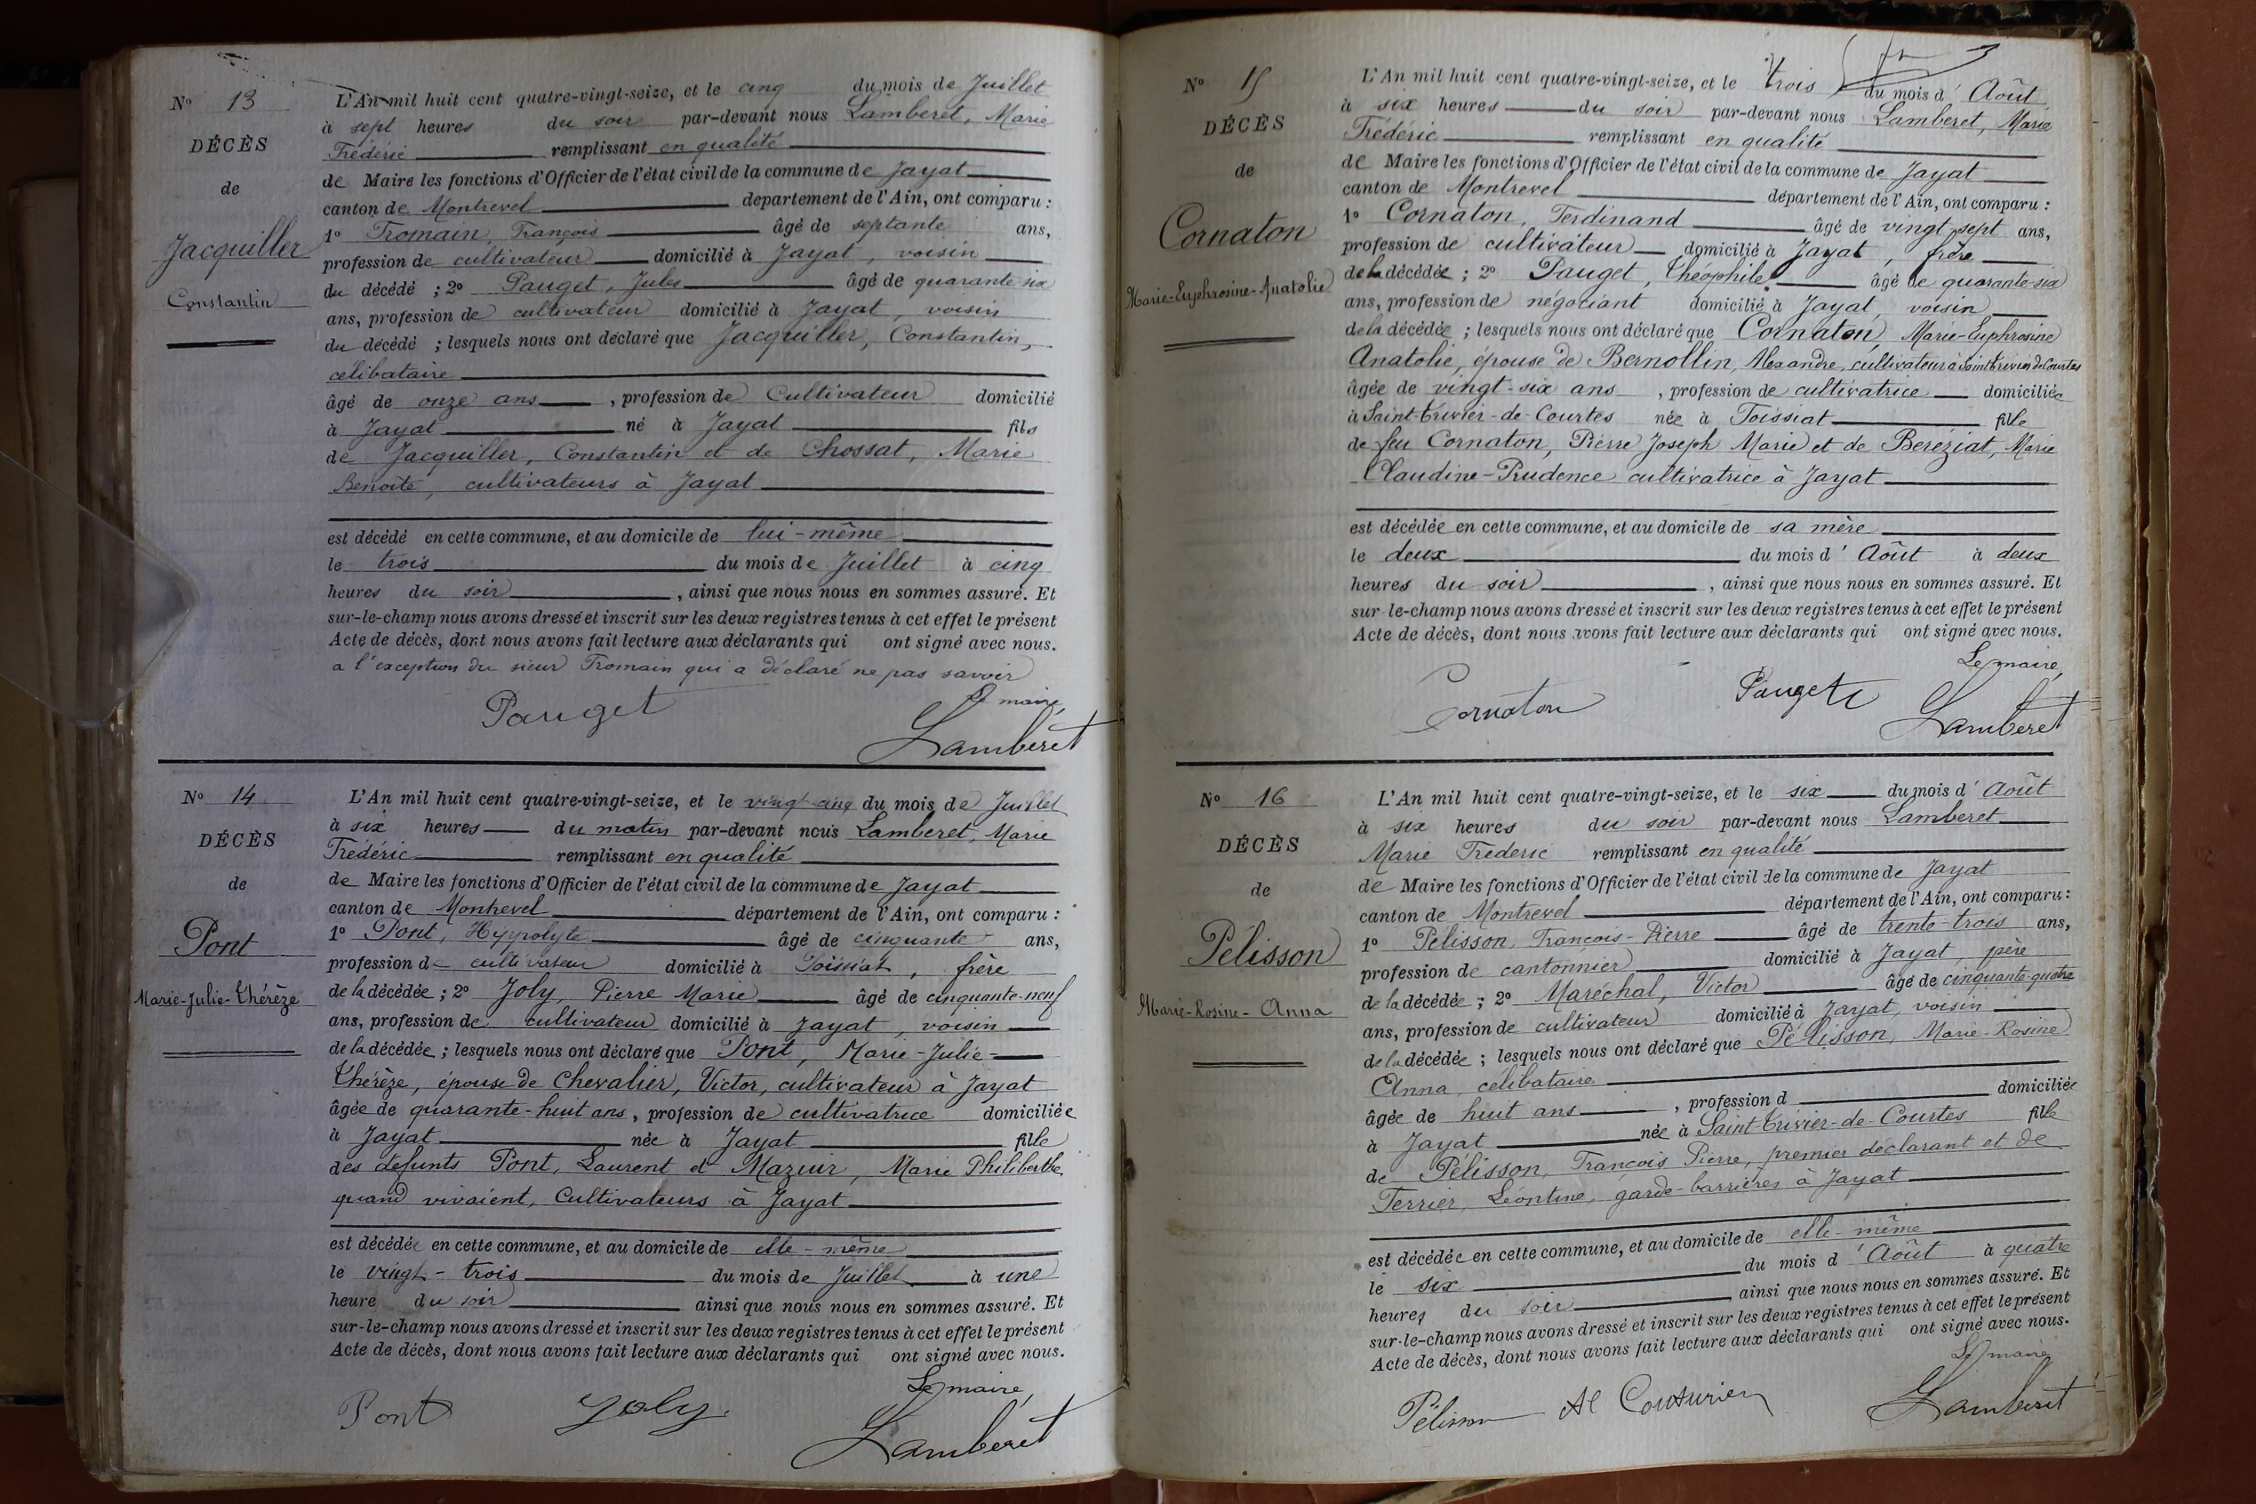 N° 13
DÉCÈS
de
Jacquiller
Constantin
L'An mil huit cent quatre-vingt-seize, et le cinq du mois de Juillet
à sept heures du soir par-devant nous Lamberet, Marie
Frédéric remplissant en qualité
de Maire les fonctions d'Officier de l'état civil de la commune de Jayat
canton de Montrevel département de l'Ain, ont comparu :
1° Fromain, François âgé de septante ans,
profession de cultivateur domicilié à Jayat, voisin
du décédé ; 2° Pauget, Jules âgé de quarante six
ans, profession de cultivateur domicilié à Jayat, voisin
du décédé ; lesquels nous ont déclaré que Jacquiller, Constantin,
célibataire
âgé de onze ans, profession de Cultivateur domicilié
à Jayat né à Jayat fils
de Jacquiller, Constantin et de Chossat, Marie
Benoîte, cultivateurs à Jayat
est décédé en cette commune, et au domicile de lui-même
le trois du mois de Juillet à cinq
heures du soir, ainsi que nous nous en sommes assuré. Et
sur-le-champ nous avons dressé et inscrit sur les deux registres tenus à cet effet le présent
Acte de décès, dont nous avons fait lecture aux déclarants qui ont signé avec nous.
a l'exception du sieur Fromain qui a déclaré ne pas savoir
Le maire,
Pauget
Lamberet
N° 14
DÉCÈS
de
Pont
Marie-Julie-Thérèze
L'An mil huit cent quatre-vingt-seize, et le vingt-cinq du mois de Juillet
à six heures du matin par-devant nous Lamberet, Marie
Frédéric remplissant en qualité
de Maire les fonctions d'Officier de l'état civil de la commune de Jayat
canton de Montrevel département de l'Ain, ont comparu :
1° Pont, Hyppolyte âgé de cinquante ans,
profession de cultivateur domicilié à Foissiat, frère
de la décédée ; 2° Joly, Pierre Marie âgé de cinquante-neuf
ans, profession de cultivateur domicilié à Jayat, voisin
de la décédée ; lesquels nous ont déclaré que Pont, Marie-Julie-
Thérèze, épouse de Chevalier, Victor, cultivateur à Jayat
âgée de quarante-huit ans, profession de cultivatrice domiciliée
à Jayat née à Jayat fille
des défunts Pont, Laurent et Mazuir, Marie Philiberthe,
quand vivaient, Cultivateurs à Jayat
est décédée en cette commune, et au domicile de elle-même
le vingt-trois du mois de Juillet à une
heure du soir ainsi que nous nous en sommes assuré. Et
sur-le-champ nous avons dressé et inscrit sur les deux registres tenus à cet effet le présent
Acte de décès, dont nous avons fait lecture aux déclarants qui ont signé avec nous.
Le maire,
Pont Joly
Lamberet
N° 15
DÉCÈS
de
Cornaton
Marie-Euphrosine-Anatolie
L'An mil huit cent quatre-vingt-seize, et le trois du mois d'Août
à six heures du soir par-devant nous Lamberet, Marie
Frédéric remplissant en qualité
de Maire les fonctions d'Officier de l'état civil de la commune de Jayat
canton de Montrevel département de l'Ain, ont comparu :
1° Cornaton, Ferdinand âgé de vingt-sept ans,
profession de cultivateur domicilié à Jayat, frère
de la décédée ; 2° Pauget, Théophile âgé de quarante-six
ans, profession de négociant domicilié à Jayat, voisin
de la décédée ; lesquels nous ont déclaré que Cornaton, Marie-Euphrosine
Anatolie, épouse de Bernollin, Alexandre, cultivateur à Saint Trivier de Courtes
âgée de vingt-six ans, profession de cultivatrice domiciliée
à Saint-Trivier-de-Courtes née à Foissiat fille
de feu Cornaton, Pierre Joseph Marie et de Beréziat, Marie
Claudine-Prudence cultivatrice à Jayat
est décédée en cette commune, et au domicile de sa mère
le deux du mois d'Août à deux
heures du soir, ainsi que nous nous en sommes assuré. Et
sur-le-champ nous avons dressé et inscrit sur les deux registres tenus à cet effet le présent
Acte de décès, dont nous avons fait lecture aux déclarants qui ont signé avec nous.
Le maire,
Cornaton Pauget
Lamberet
N° 16
DÉCÈS
de
Pélisson
Marie-Rosine-Anna
L'An mil huit cent quatre-vingt-seize, et le six du mois d'Août
à six heures du soir par-devant nous Lamberet
Marie Frédéric remplissant en qualité
de Maire les fonctions d'Officier de l'état civil de la commune de Jayat
canton de Montrevel département de l'Ain, ont comparu :
1° Pélisson, François-Pierre âgé de trente-trois ans,
profession de cantonnier domicilié à Jayat, père
de la décédée ; 2° Maréchal, Victor âgé de cinquante-quatre
ans, profession de cultivateur domicilié à Jayat, voisin
de la décédée ; lesquels nous ont déclaré que Pélisson, Marie-Rosine
Anna, célibataire
âgée de huit ans, profession d domiciliée
à Jayat née à Saint-Trivier-de-Courtes fille
de Pélisson, François Pierre, premier déclarant et de
Terrier, Léontine, garde-barrières à Jayat
est décédée en cette commune, et au domicile de elle-même
le six du mois d'Août à quatre
heures du soir ainsi que nous nous en sommes assuré. Et
sur-le-champ nous avons dressé et inscrit sur les deux registres tenus à cet effet le présent
Acte de décès, dont nous avons fait lecture aux déclarants qui ont signé avec nous.
Le maire,
Pélisson
Lamberet